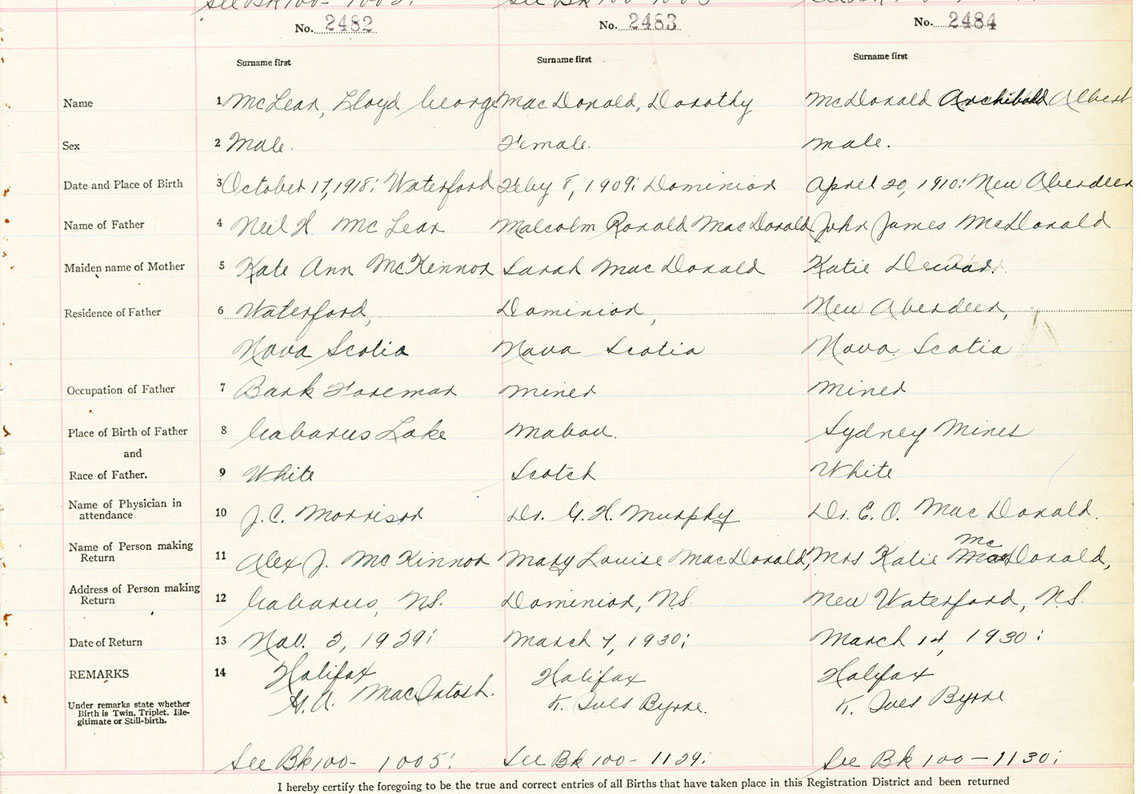 See Bk 100 - 1002: See Bk 100 - 1003
No. 2482 No. 2483 No. 2484
Surname first Surname first Surname first
Name 1 McLean, Lloyd George MacDonald, Dorothy McDonald Archibald Albert
Sex 2 Male. Female. Male.
Date and Place of Birth 3 October 17, 1918: Waterford Feby 8, 1909: Dominion April 20, 1910: New Aberdeen
Name of Father 4 Neil H. McLean Malcolm Ronald MacDonald John James McDonald
Maiden name of Mother 5 Kate Ann McKinnon Sarah MacDonald Katie Dewar.
Residence of Father 6 Waterford, Dominion, New Aberdeen,
Nova Scotia Nova Scotia Nova Scotia
Occupation of Father 7 Bank Foreman Miner Miner
Place of Birth of Father 8 Gabarus Lake Mabou. Sydney Mines
and
Race of Father. 9 White Scotch White
Name of Physician in
attendance 10 J.C. Morrison Dr. G.H. Murphy Dr. E.O. MacDonald.
Name of Person making
Return 11 Alex J. McKinnon Mary Louise MacDonald, Mrs Katie McDonald,
Address of Person making
Return 12 Gabarus, N.S. Dominion, N.S. New Waterford, N.S.
Date of Return 13 Nov. 2, 1929: March 7, 1930: March 14, 1930:
REMARKS 14 Halifax Halifax Halifax
Under remarks state whether
Birth is Twin, Triplet, Ille-
gitimate or Still-birth.
MacIntosh. K. Ives Byrne. K. Ives Byrne
See Bk 100 - 1005: See Bk 100 - 1129: See Bk 100 - 1130:
I hereby certify the foregoing to be the true and correct entries of all Births that have taken place in this Registration District and been returned